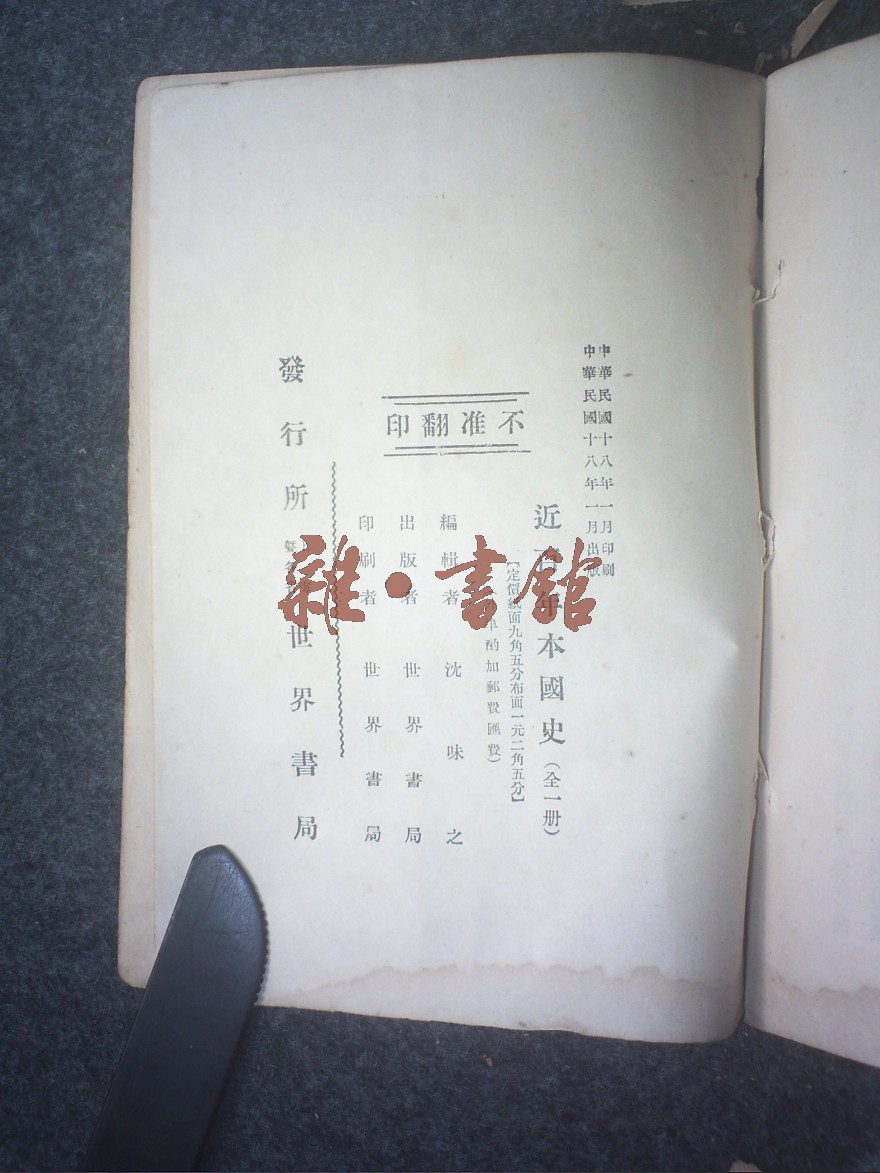 中華民國十八年一月印刷
中華民國十八年一月出版
不准翻印
近百年本國史(全一册)
【定價紙面九角五分布面一元二角五分】
酌加郵費匯費)
編輯者 沈味之
出版者 世界書局
印刷者 世界書局
發行所 世界書局
雜·書館